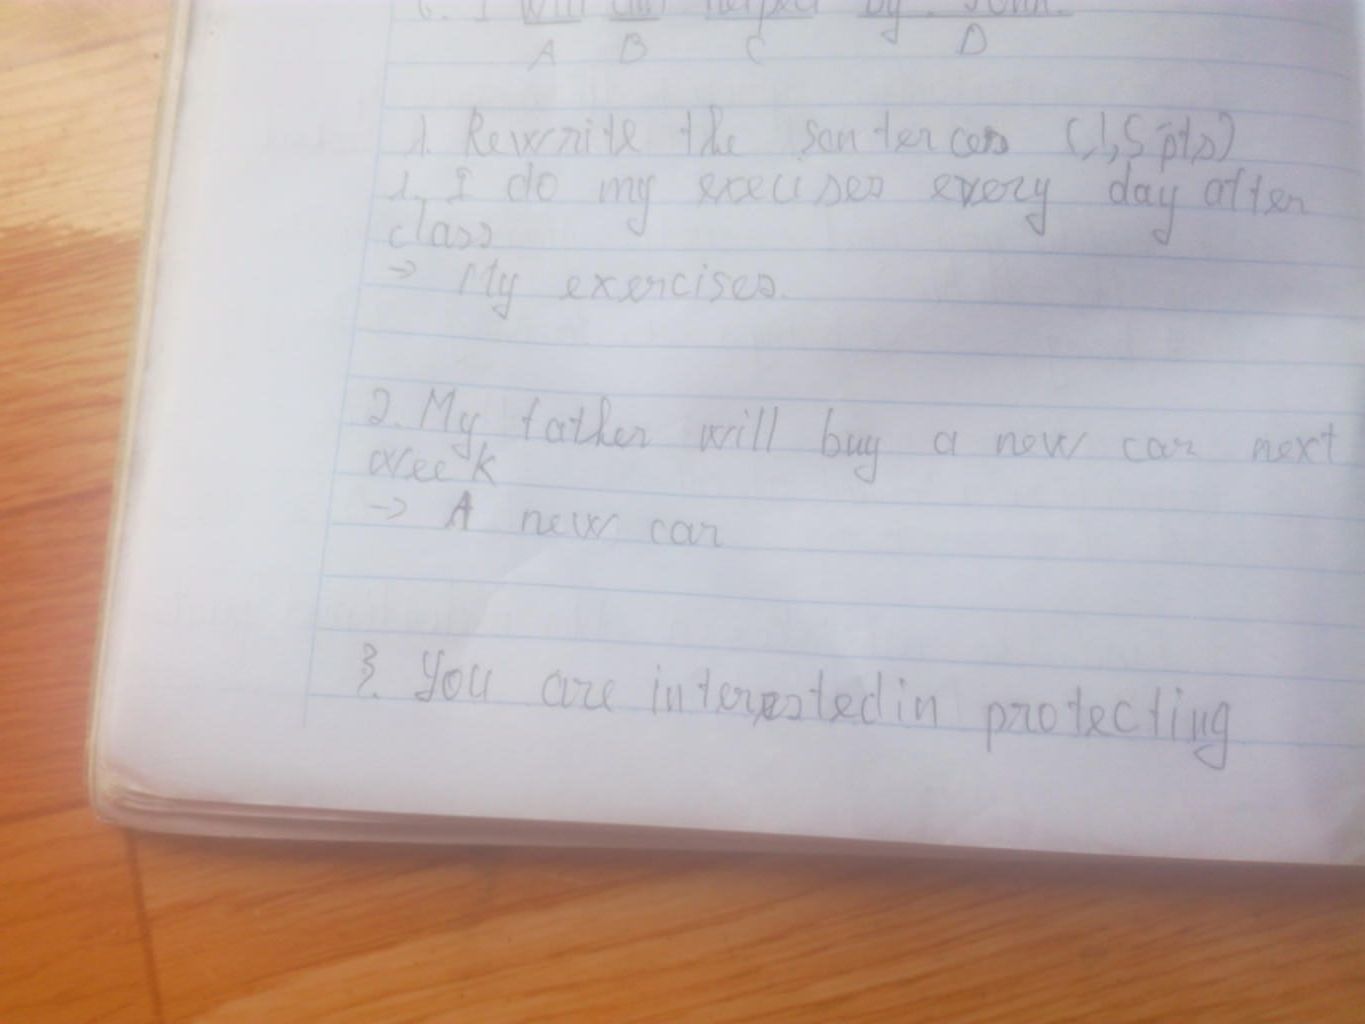 6. I will helped by John.
A B C D
1. Rewrite the sentences (1,5 pts)
1. I do my execises every day after
class
→ My exercises.
2. My father will buy a new car next
week
→ A new car
3. You are interested in protecting